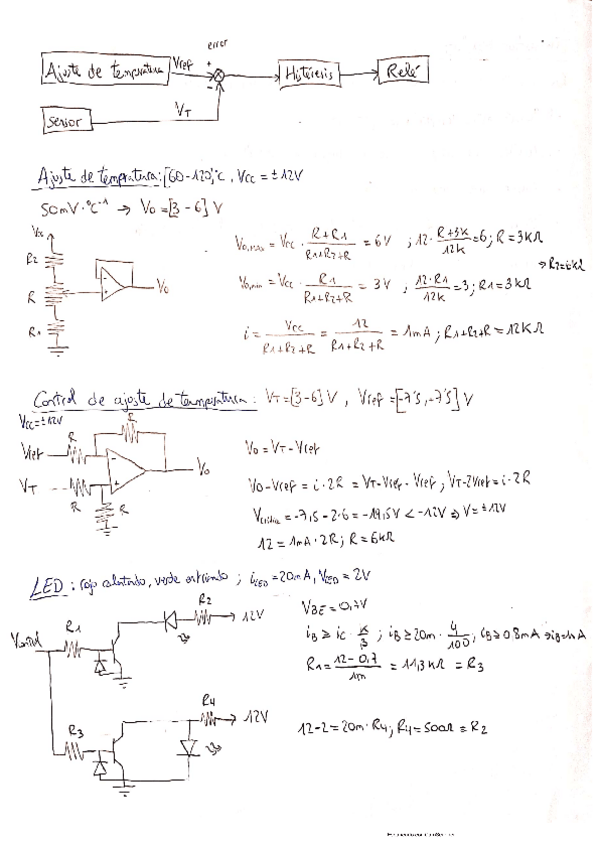 error
Ajuste de temperatura
Vref
+
-
Histéresis
Relé
Sensor
VT
Ajuste de temperatura: [60-120]°C, Vcc = ±12V
50mV·°C⁻¹ → Vo = [3-6] V
Vcc
R2
R
R1
Vo
Vo,max = Vcc · (R+R1)/(R1+R2+R) = 6V ; 12·(R+3K)/12K = 6; R = 3KΩ
Vo,min = Vcc · R1/(R1+R2+R) = 3V ; 12·R1/12K = 3; R1 = 3KΩ
i = Vcc/(R1+R2+R) = 12/(R1+R2+R) = 1mA; R1+R2+R = 12KΩ
Control de ajuste de temperatura: VT = [3-6] V, Vref = [-7'5, -7'5] V
Vcc = ±12V
Vref
R
R
VT
R
R
Vo
Vo = VT - Vref
Vo - Vref = i·2R = VT - Vref - Vref; VT - 2Vref = i·2R
= -7,5 - 2·6 = -19,5V < -12V ⇒ V = ±12V
12 = 1mA · 2R; R = 6KΩ
LED: rojo calentando, verde enfriando; iLED = 20mA, VLED = 2V
Vcontrol
R1
R2
12V
R3
R4
12V
VBE = 0,7V
iB ≥ iC · K/β ; iB ≥ 20m · 4/100; iB ≥ 0'8mA ⇒ iB = 1mA
R1 = (12-0,7)/1m = 11,3KΩ = R3
12-2 = 20m·R4; R4 = 500Ω = R2